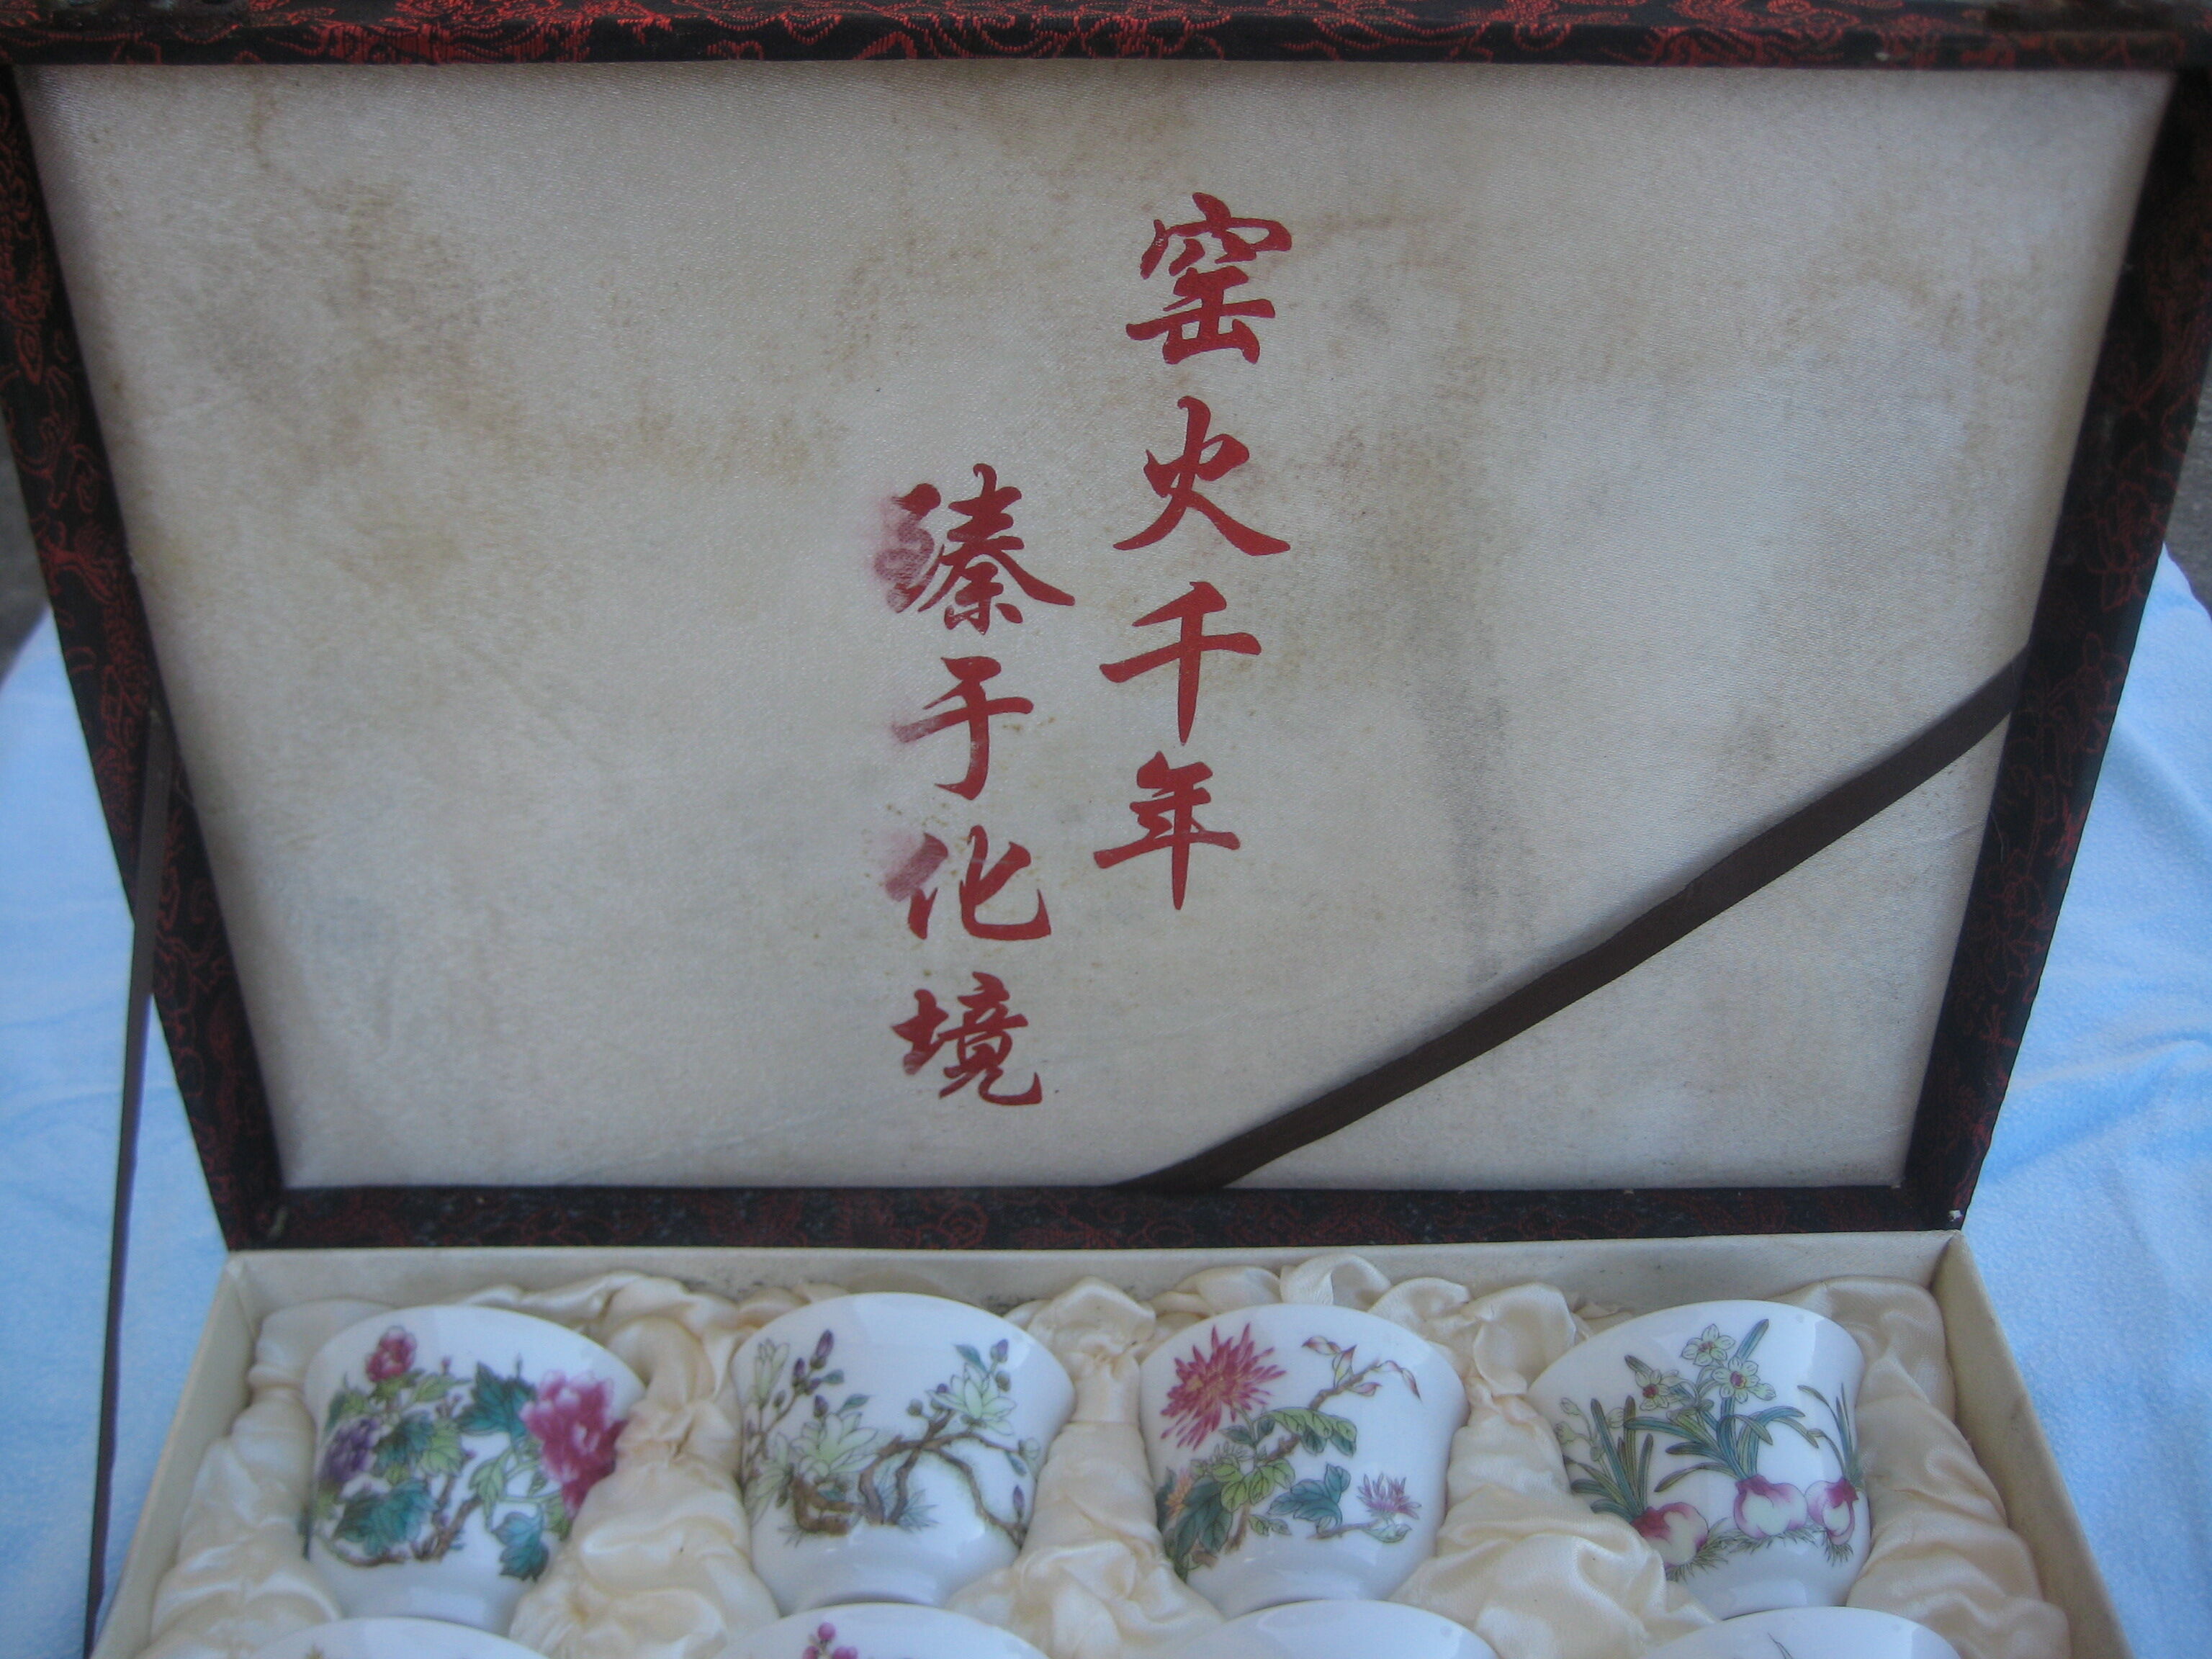 窑火千年
臻于化境